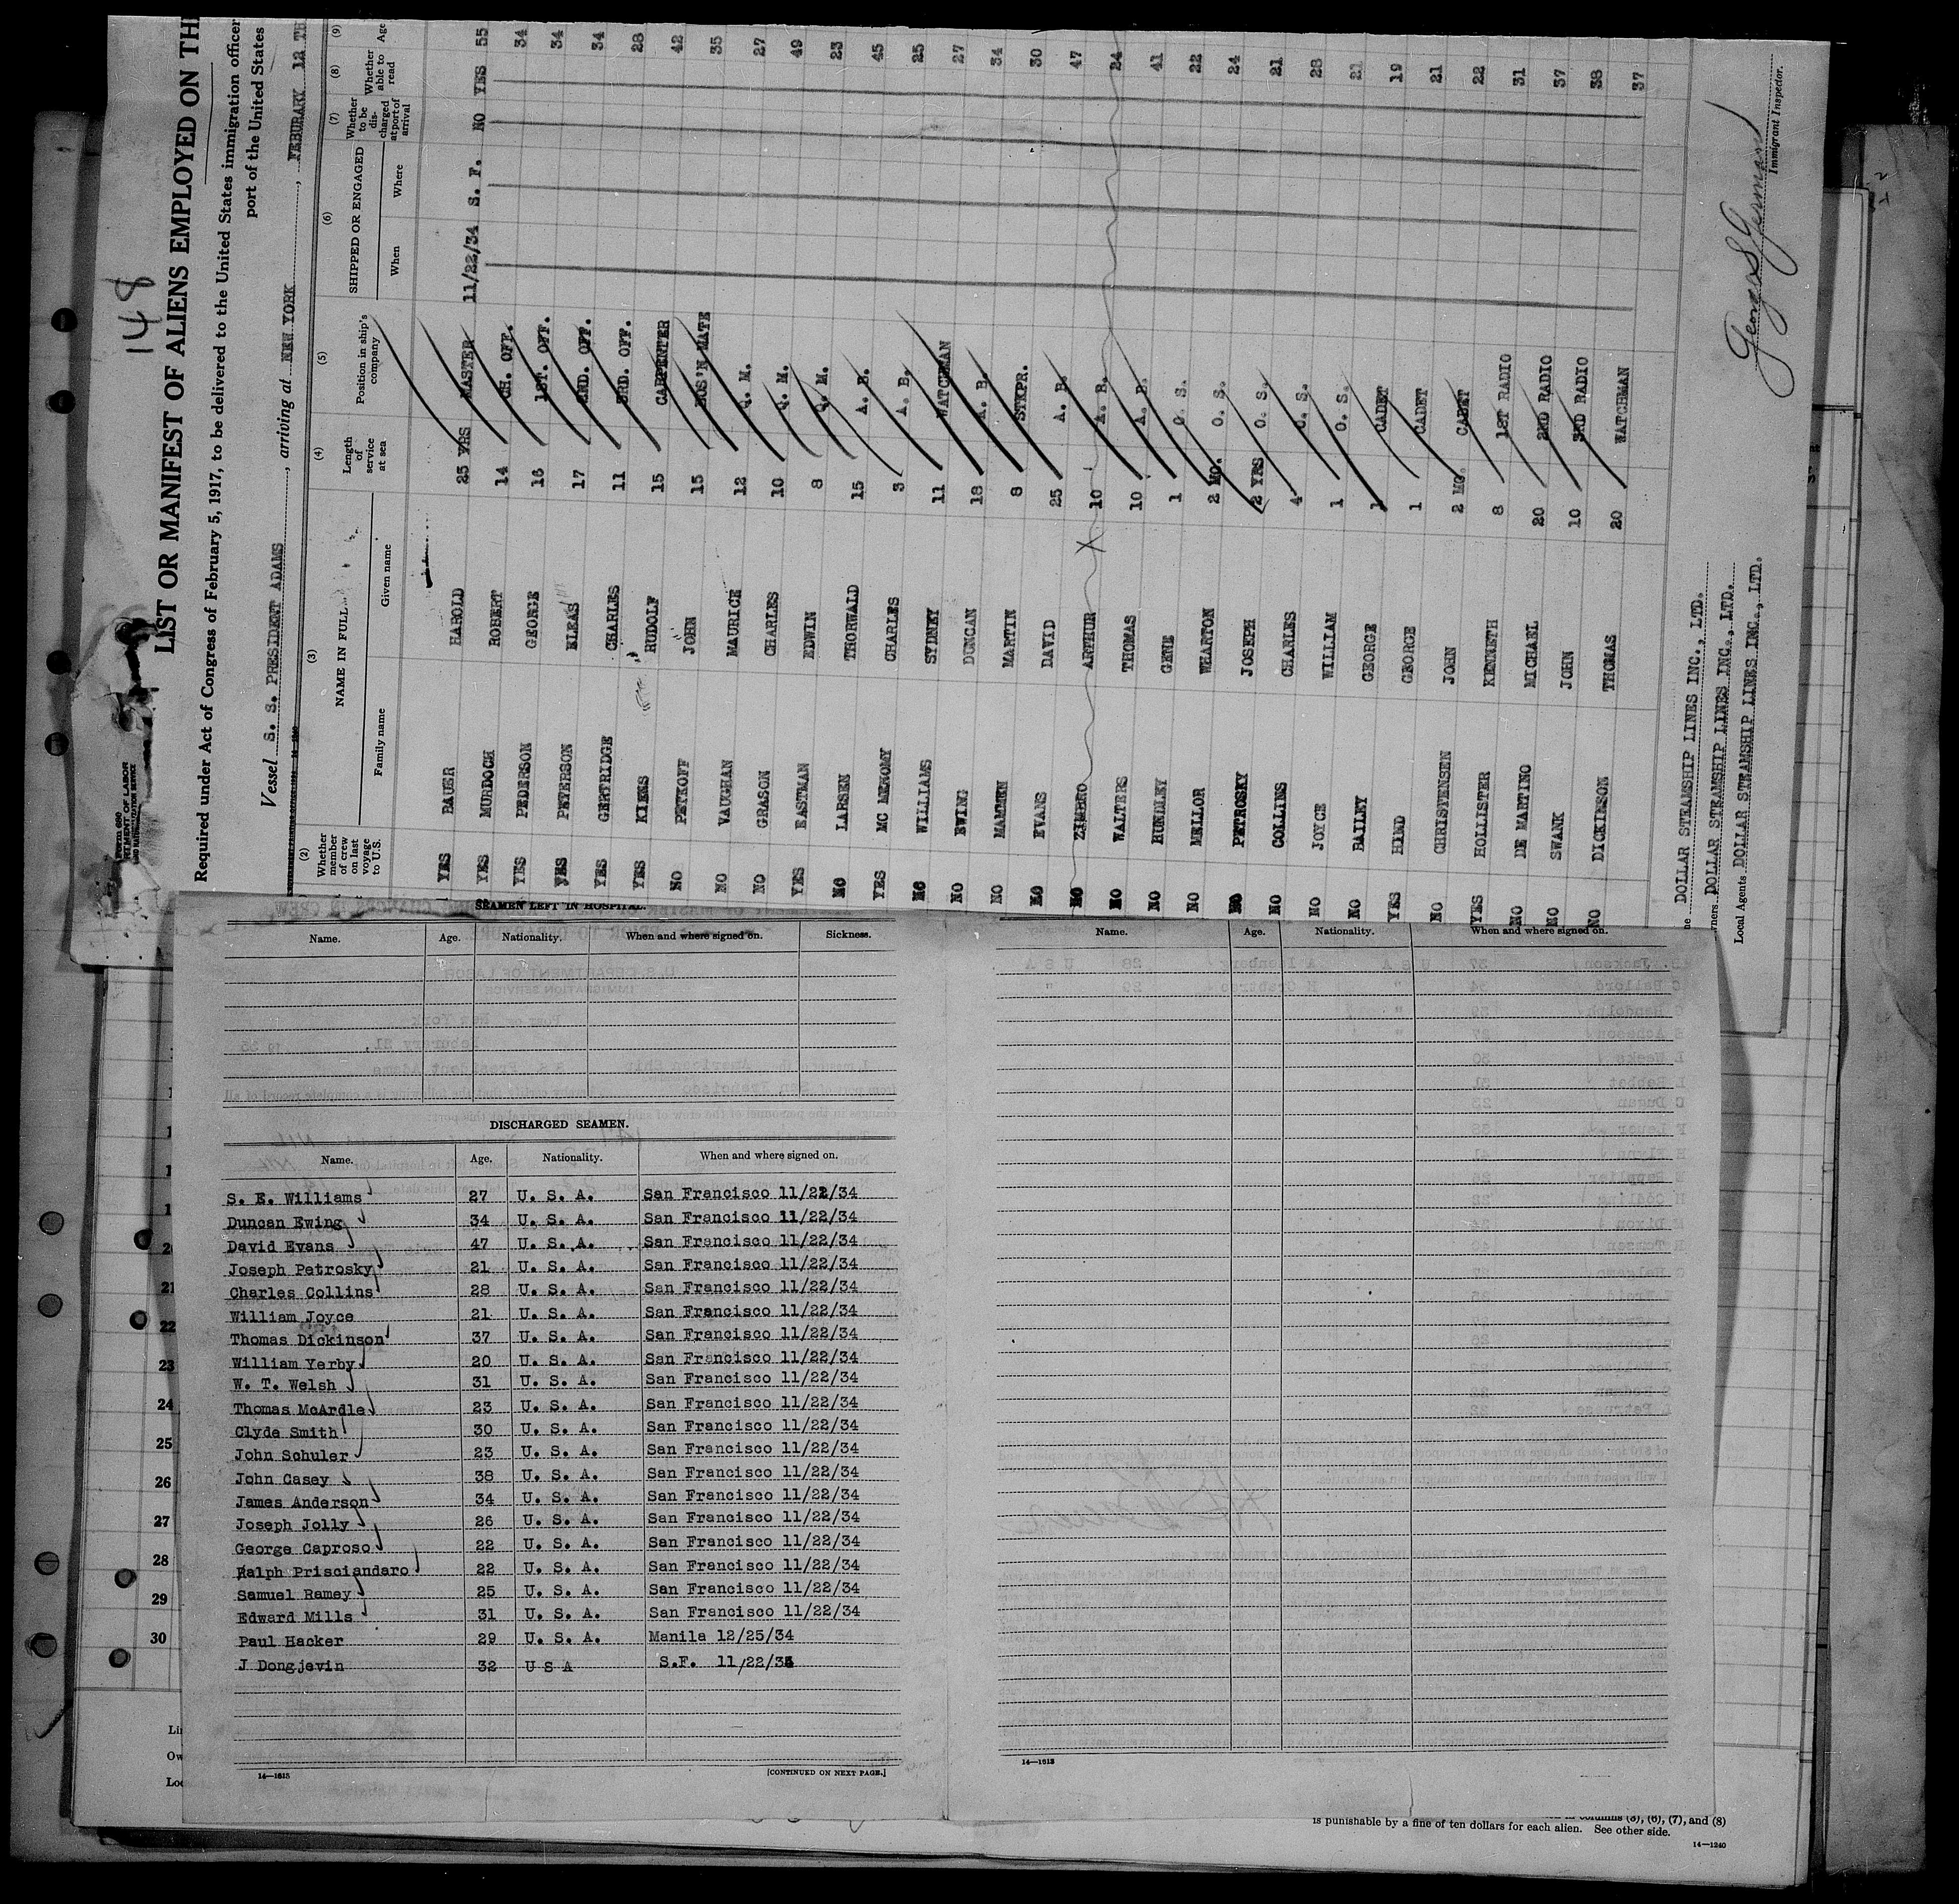 148
LIST OR MANIFEST OF ALIENS EMPLOYED ON TH
Required under Act of Congress of February 5, 1917, to be delivered to the United States immigration officer
port of the United States
Vessel S. S. PRESIDENT ADAMS, arriving at NEW YORK, FEBURARY 12 TH
(2) (3) (4) (5) (6) (7) (8) (9)
Whether member of crew on last voyage to U.S. NAME IN FULL Family name Given name Length of service at sea Position in ship's company SHIPPED OR ENGAGED When Where Whether to be discharged at port of arrival Whether able to read Age
YES BAUER HAROLD 25 YRS MASTER 11/22/34 S. F. NO YES 55
YES MURDOCH ROBERT 14 CH. OFF. 34
YES PEDERSON GEORGE 16 1ST. OFF. 34
YES PETERSON KLEAS 17 2ND. OFF. 34
YES GERTRIDGE CHARLES 11 3RD. OFF. 28
YES KIEMS RUDOLF 15 CARPENTER 42
NO PETKOFF JOHN 15 BOS'N MATE 35
NO VAUGHAN MAURICE 12 Q. M. 27
NO GRASON CHARLES 10 Q. M. 49
YES EASTMAN EDWIN 8 Q. M. 23
NO LARSEN THORWALD 15 A. B. 45
YES MC MENOMY CHARLES 3 A. B. 25
NO WILLIAMS SYDNEY 11 WATCHMAN 27
NO EWING DUNCAN 18 A. B. 34
NO MAMMEN MARTIN 8 STKPR. 30
NO EVANS DAVID 25 A. B. 47
NO ZIMBRO ARTHUR 10 A. B. 24
NO WALTERS THOMAS 10 A. B. 41
NO HUNDLEY GENE 1 O. S. 22
NO MELLOR WHARTON 2 MO. O. S. 24
NO PETROSKY JOSEPH 2 YRS O. S. 21
NO COLLINS CHARLES 4 O. S. 28
NO JOYCE WILLIAM 1 O. S. 21
NO BAILEY GEORGE 1 CADET 19
YES HIND GEORGE 1 CADET 21
NO CHRISTENSEN JOHN 2 MO. CADET 22
YES HOLLISTER KENNETH 8 1ST RADIO 31
NO DE MARTINO MICHAEL 20 2ND RADIO 37
NO SWANK JOHN 10 3RD RADIO 38
NO DICKINSON THOMAS 20 WATCHMAN 37
DOLLAR STEAMSHIP LINES INC., LTD.
DOLLAR STEAMSHIP LINES INC., LTD.
Local Agents DOLLAR STEAMSHIP LINES INC., LTD.
Immigrant Inspector.
SEAMEN LEFT IN HOSPITAL.
Name. Age. Nationality. When and where signed on. Sickness.
DISCHARGED SEAMEN.
Name. Age. Nationality. When and where signed on.
S. E. Williams 27 U. S. A. San Francisco 11/22/34
Duncan Ewing 34 U. S. A. San Francisco 11/22/34
David Evans 47 U. S. A. San Francisco 11/22/34
Joseph Petrosky 21 U. S. A. San Francisco 11/22/34
Charles Collins 28 U. S. A. San Francisco 11/22/34
William Joyce 21 U. S. A. San Francisco 11/22/34
Thomas Dickinson 37 U. S. A. San Francisco 11/22/34
William Yerby 20 U. S. A. San Francisco 11/22/34
W. T. Welsh 31 U. S. A. San Francisco 11/22/34
Thomas McArdle 23 U. S. A. San Francisco 11/22/34
Clyde Smith 30 U. S. A. San Francisco 11/22/34
John Schuler 23 U. S. A. San Francisco 11/22/34
John Casey 38 U. S. A. San Francisco 11/22/34
James Anderson 34 U. S. A. San Francisco 11/22/34
Joseph Jolly 26 U. S. A. San Francisco 11/22/34
George Caproso 22 U. S. A. San Francisco 11/22/34
Ralph Prisciandaro 22 U. S. A. San Francisco 11/22/34
Samuel Ramey 25 U. S. A. San Francisco 11/22/34
Edward Mills 31 U. S. A. San Francisco 11/22/34
Paul Hacker 29 U. S. A. Manila 12/25/34
J Dongjevin 32 U S A S.F. 11/22/34
14—1613 [CONTINUED ON NEXT PAGE.]
Name. Age. Nationality. When and where signed on.
14—1613
21
22
23
24
25
26
27
28
29
30
columns (3), (6), (7), and (8)
is punishable by a fine of ten dollars for each alien. See other side.
14—1240